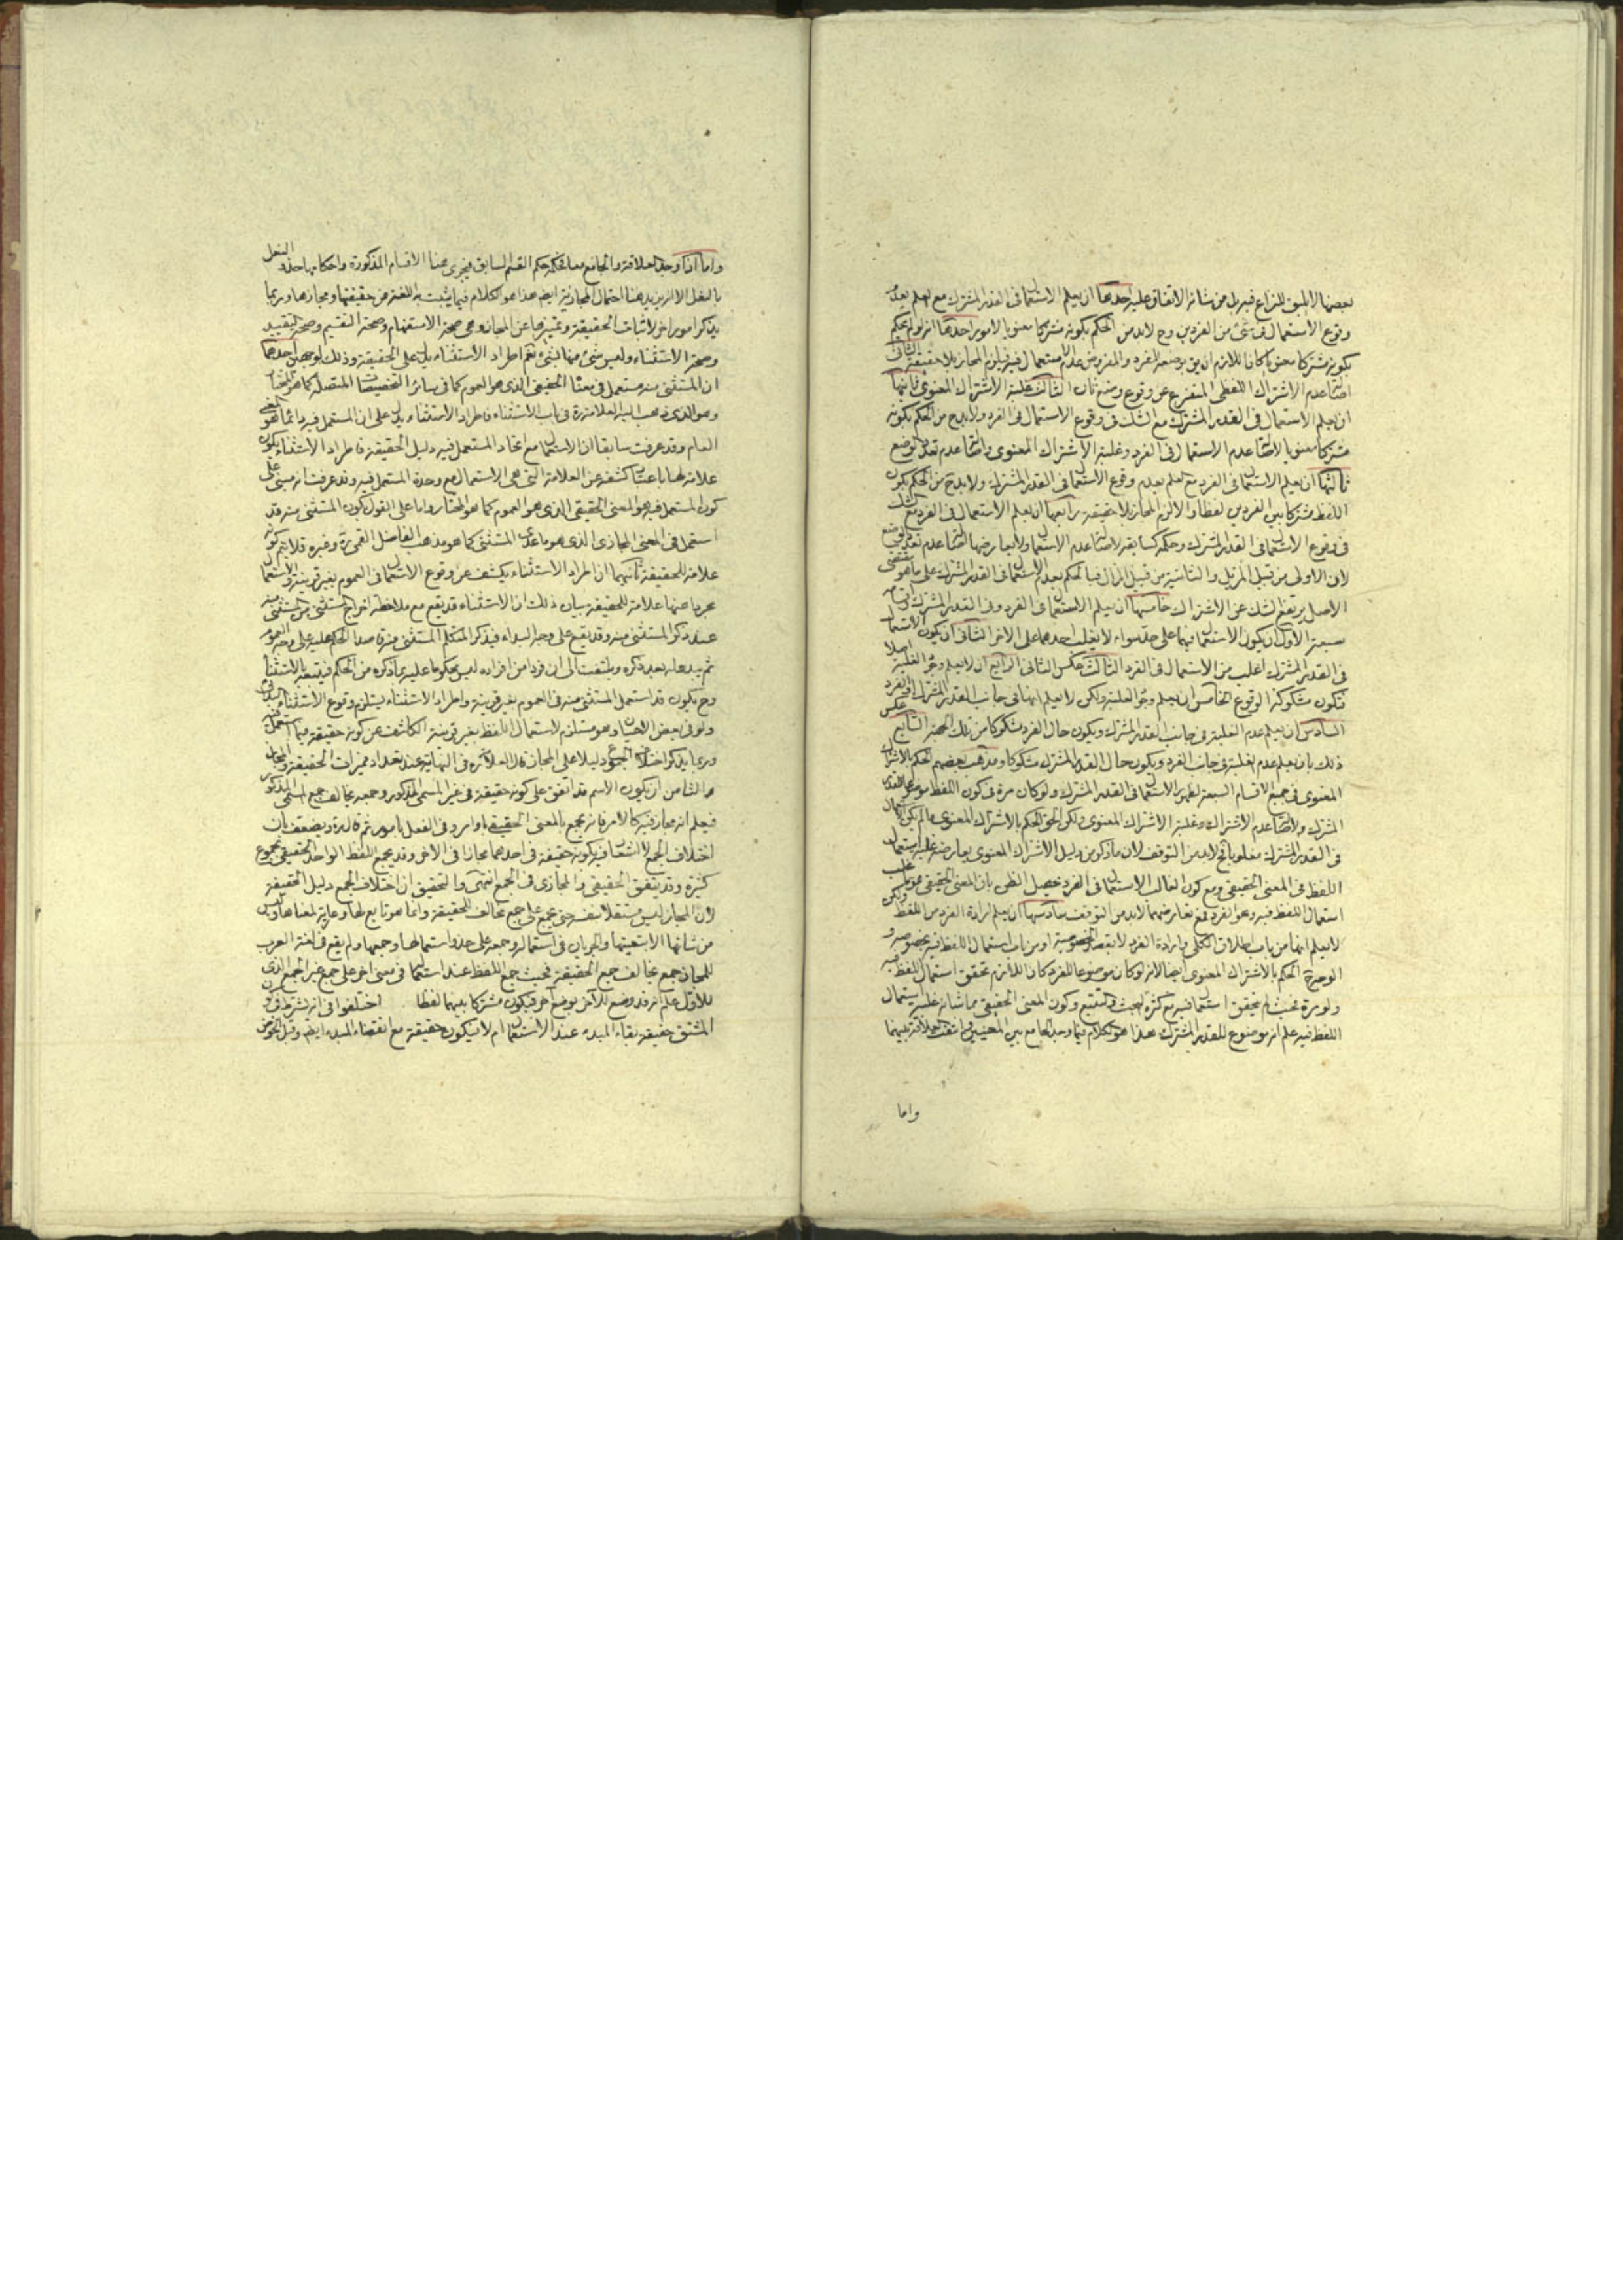 بعضها لا يليق للنزاع فيه بل من شانه الاتفاق عليه احدها ان يعلم الاستعمال فى القدر المشترك مع العلم بعدم
وقوع الاستعمال فى شئ من الفردين وح لا بد من الحكم بكونه مشتركا معنويا لامور احدها انه لو لم يحكم
بكونه مشتركا معنويا كان اللازم ان يق بوضعه للفرد والمفروض عدم استعمال فيه فيلزم المجاز بلا حقيقة الثانى
اصالة عدم الاشتراك اللفظى المتفرع عن وقوع وضع ثان الثالث غلبة الاشتراك المعنوى ثانيها
ان يعلم الاستعمال فى القدر المشترك مع الشك فى وقوع الاستعمال فى الفرد ولا بد ح من الحكم بكونه
مشتركا معنويا لاصالة عدم الاستعمال فى الفرد وغلبة الاشتراك المعنوى واصالة عدم تعدد الوضع
ثالثها ان يعلم الاستعمال فى الفرد مع العلم بعدم وقوع الاستعمال فى القدر المشترك ولا بد ح من الحكم بكون
اللفظ مشتركا بين الفردين لفظا والا لزم المجاز بلا حقيقة رابعها ان يعلم الاستعمال فى الفرد مع الشك
فى وقوع الاستعمال فى القدر المشترك وحكمه كسابقه لاصالة عدم الاستعمال ولا يعارضها اصالة عدم تعدد الوضع
لان الاولى من قبيل المزيل والثانية من قبيل المزال فبالحكم بعدم الاستعمال فى القدر المشترك على ما هو مقتضى
الاصل يرتفع الشك عن الاشتراك خامسها ان يعلم الاستعمال فى الفرد وفى القدر المشترك واقسامه
سبعة الاول ان يكون الاستعمال فيهما على حد سواء لا يغلب احدهما على الاخر الثانى ان يكون الاستعمال
فى القدر المشترك اغلب من الاستعمال فى الفرد الثالث عكس الثانى الرابع ان لا يعلم وجود الغلبة اصلا
فتكون مشكوكة الوقوع الخامس ان يعلم وجود الغلبة ولكن لا يعلم انها فى جانب القدر المشترك او الفرد
السادس ان يعلم عدم الغلبة فى جانب القدر المشترك ويكون حال الفرد مشكوكا من تلك الجهة السابع عكس
ذلك بان يعلم عدم الغلبة فى جانب الفرد ويكون حال القدر المشترك مشكوكا ومذهب بعضهم الحكم بالاشتراك
المعنوى فى جميع الاقسام السبعة لظهور الاستعمال فى القدر المشترك ولو كان مرة فى كون اللفظ موضوعا للقدر
المشترك ولاصالة عدم الاشتراك وغلبة الاشتراك المعنوى ولكن الحق الحكم بالاشتراك المعنوى ما لم يكن الاستعمال
فى القدر المشترك مغلوبا فح لا بد من التوقف لان ما ذكر من دليل الاشتراك المعنوى يعارضه غلبة استعمال
اللفظ فى المعنى الحقيقى ومع كون الغالب الاستعمال فى الفرد حصل الظن بان المعنى الحقيقى هو ما غلب
استعمال اللفظ فيه وهو الفرد فمع تعارضهما لا بد من التوقف سادسها ان يعلم ارادة الفرد من اللفظ ولكن
لا يعلم انها من باب اطلاق الكلى وارادة الفرد لا بقصد الخصوصية او من باب استعمال اللفظ فيه بخصوصه و
الوجه ح الحكم بالاشتراك المعنوى ايضا لانه لو كان موضوعا للفرد كان اللازم تحقق استعمال اللفظ فيه
ولو مرة فحيث لم يتحقق استعماله فيه مع كثرة البحث والتتبع وكون المعنى الحقيقى مما شانه غلبة استعمال
اللفظ فيه علم انه موضوع للقدر المشترك هذا هو الكلام فيما وجد الجامع بين المعنيين وانتفت العلاقة بينهما
واما
واما اذا وجد العلاقة والجامع معا فحكمه حكم القسم السابق فيجرى هنا الاقسام المذكورة واحكامها حذو النعل
بالنعل الا انه يزيد هنا احتمال المجازية ايضا هذا هو الكلام فيما يثبت به اللغة من حقيقتها ومجازها وربما
يذكر امور اخر لاثبات الحقيقة وتمييزها عن المجاز وهى صحة الاستفهام وصحة التقسيم وصحة التقييد
وصحة الاستثناء وليس شئ منها بشئ نعم اطراد الاستثناء يدل على الحقيقة وذلك لوجهين احدهما
ان المستثنى منه مستعمل فى معناه الحقيقى الذى هو العموم كما فى سائر التخصيصات المتصلة كما هو المختار
وهو الذى ذهب اليه العلامة ره فى باب الاستثناء فاطراد الاستثناء يدل على ان المستعمل فيه دائما هو المعنى
العام وقد عرفت سابقا ان الاستعمال مع اتحاد المستعمل فيه دليل الحقيقة فاطراد الاستثناء يكون
علامة لها باعتبار كشفه عن العلامة التى هى الاستعمال مع وحدة المستعمل فيه وقد عرفت انه مبنى على
كون المستعمل فيه هو المعنى الحقيقى الذى هو العموم كما هو المختار واما على القول بكون المستثنى منه قد
استعمل فى المعنى المجازى الذى هو ما عدا المستثنى كما هو مذهب الفاضل القمى ره وغيره فلا يتم كونه
علامة للحقيقة ثانيهما ان اطراد الاستثناء يكشف عن وقوع الاستعمال فى العموم بغير قرينة والاستعمال
مجردا عنها علامة للحقيقة بيان ذلك ان الاستثناء قد يقع مع ملاحظة اخراج المستثنى من المستثنى منه
عند ذكر المستثنى منه وقد يقع على وجه البداء فيذكر المتكلم المستثنى منه قاصدا الحكم عليه على وجه العموم
ثم يبدو له بعد ذكره ويلتفت الى ان فردا من افراده ليس محكوما عليه بما ذكره من الحكم فيتبعه بالاستثناء
وح يكون قد استعمل المستثنى منه فى العموم بغير قرينة واطراد الاستثناء يستلزم وقوع الاستثناء البدائى
ولو فى بعض الاحيان وهو مستلزم لاستعمال اللفظ بغير قرينة الكاشف عن كونه حقيقة فيما استعمل فيه
وربما يذكر اختلاف الجمع دليلا على المجاز قال العلامة ره فى النهاية عند تعداد مميزات الحقيقة والمجاز
الثامن ان يكون الاسم قد اتفق على كونه حقيقة فى غير المسمى المذكور وجمعه مخالف جمع المسمى المذكور
فيعلم انه مجاز فيه كالامر فانه يجمع بالمعنى الحقيقى باوامر وفى الفعل بامور ثم قال ره ويضعف بان
اختلاف الجمع لا اشعار فيه بكونه حقيقة فى احدهما مجازا فى الاخر وقد يجمع اللفظ الواحد الحقيقى بجموع
كثيرة وقد يتفق الحقيقى والمجازى فى الجمع انتهى والتحقيق ان اختلاف الجمع دليل الحقيقة
لان المجاز ليس مستقلا بنفسه حتى يجمع على جمع مخالف للحقيقة وانما هو تابع لها وعارية لمعناها وليس
من شانها الا تبعيتها والجريان فى استعماله وجمعه على حذو استعمالها وجمعها ولم يقع فى لغة العرب
للمجاز جمع مخالف جمع الحقيقة فحيث جمع اللفظ عند استعماله فى معنى اخر على جمع غير الجمع الذى
للاول علم انه قد وضع للآخر بوضع آخر فيكون مشتركا بينهما لفظا اختلفوا فى انه يشترط فى كون
المشتق حقيقة بقاء المبدء عند الاستعمال ام لا فيكون حقيقة مع انقضاء المبدء ايضا وقبل الخوض